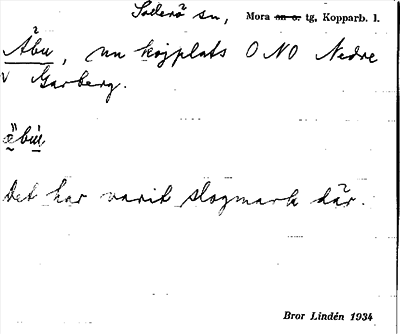 Sollerö sn, Mora sn o. tg, Kopparb. l.
Åbu, nu kojplats ONO Nedre
v Garberg.
Det har varit slogmark där.
Bror Lindén 1934